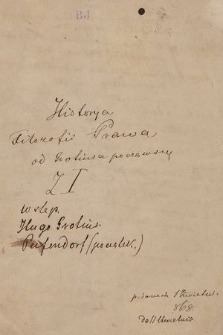 Historya
Filozofii Prawa
od Grotiusa począwszy
Z I
wstęp
Hugo Grotius
Pufendorf (początek.)
1 Kwietnia
868